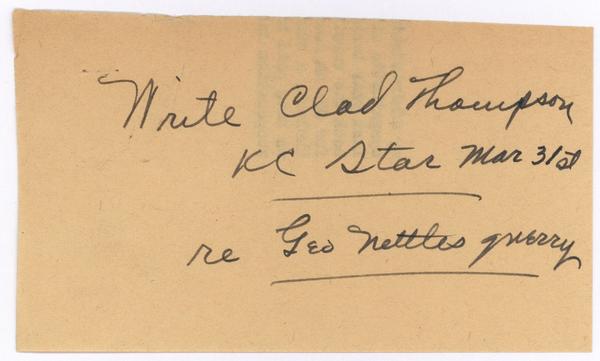 Write Clad Thompson
KC Star Mar 31st
re Geo Nettles querry